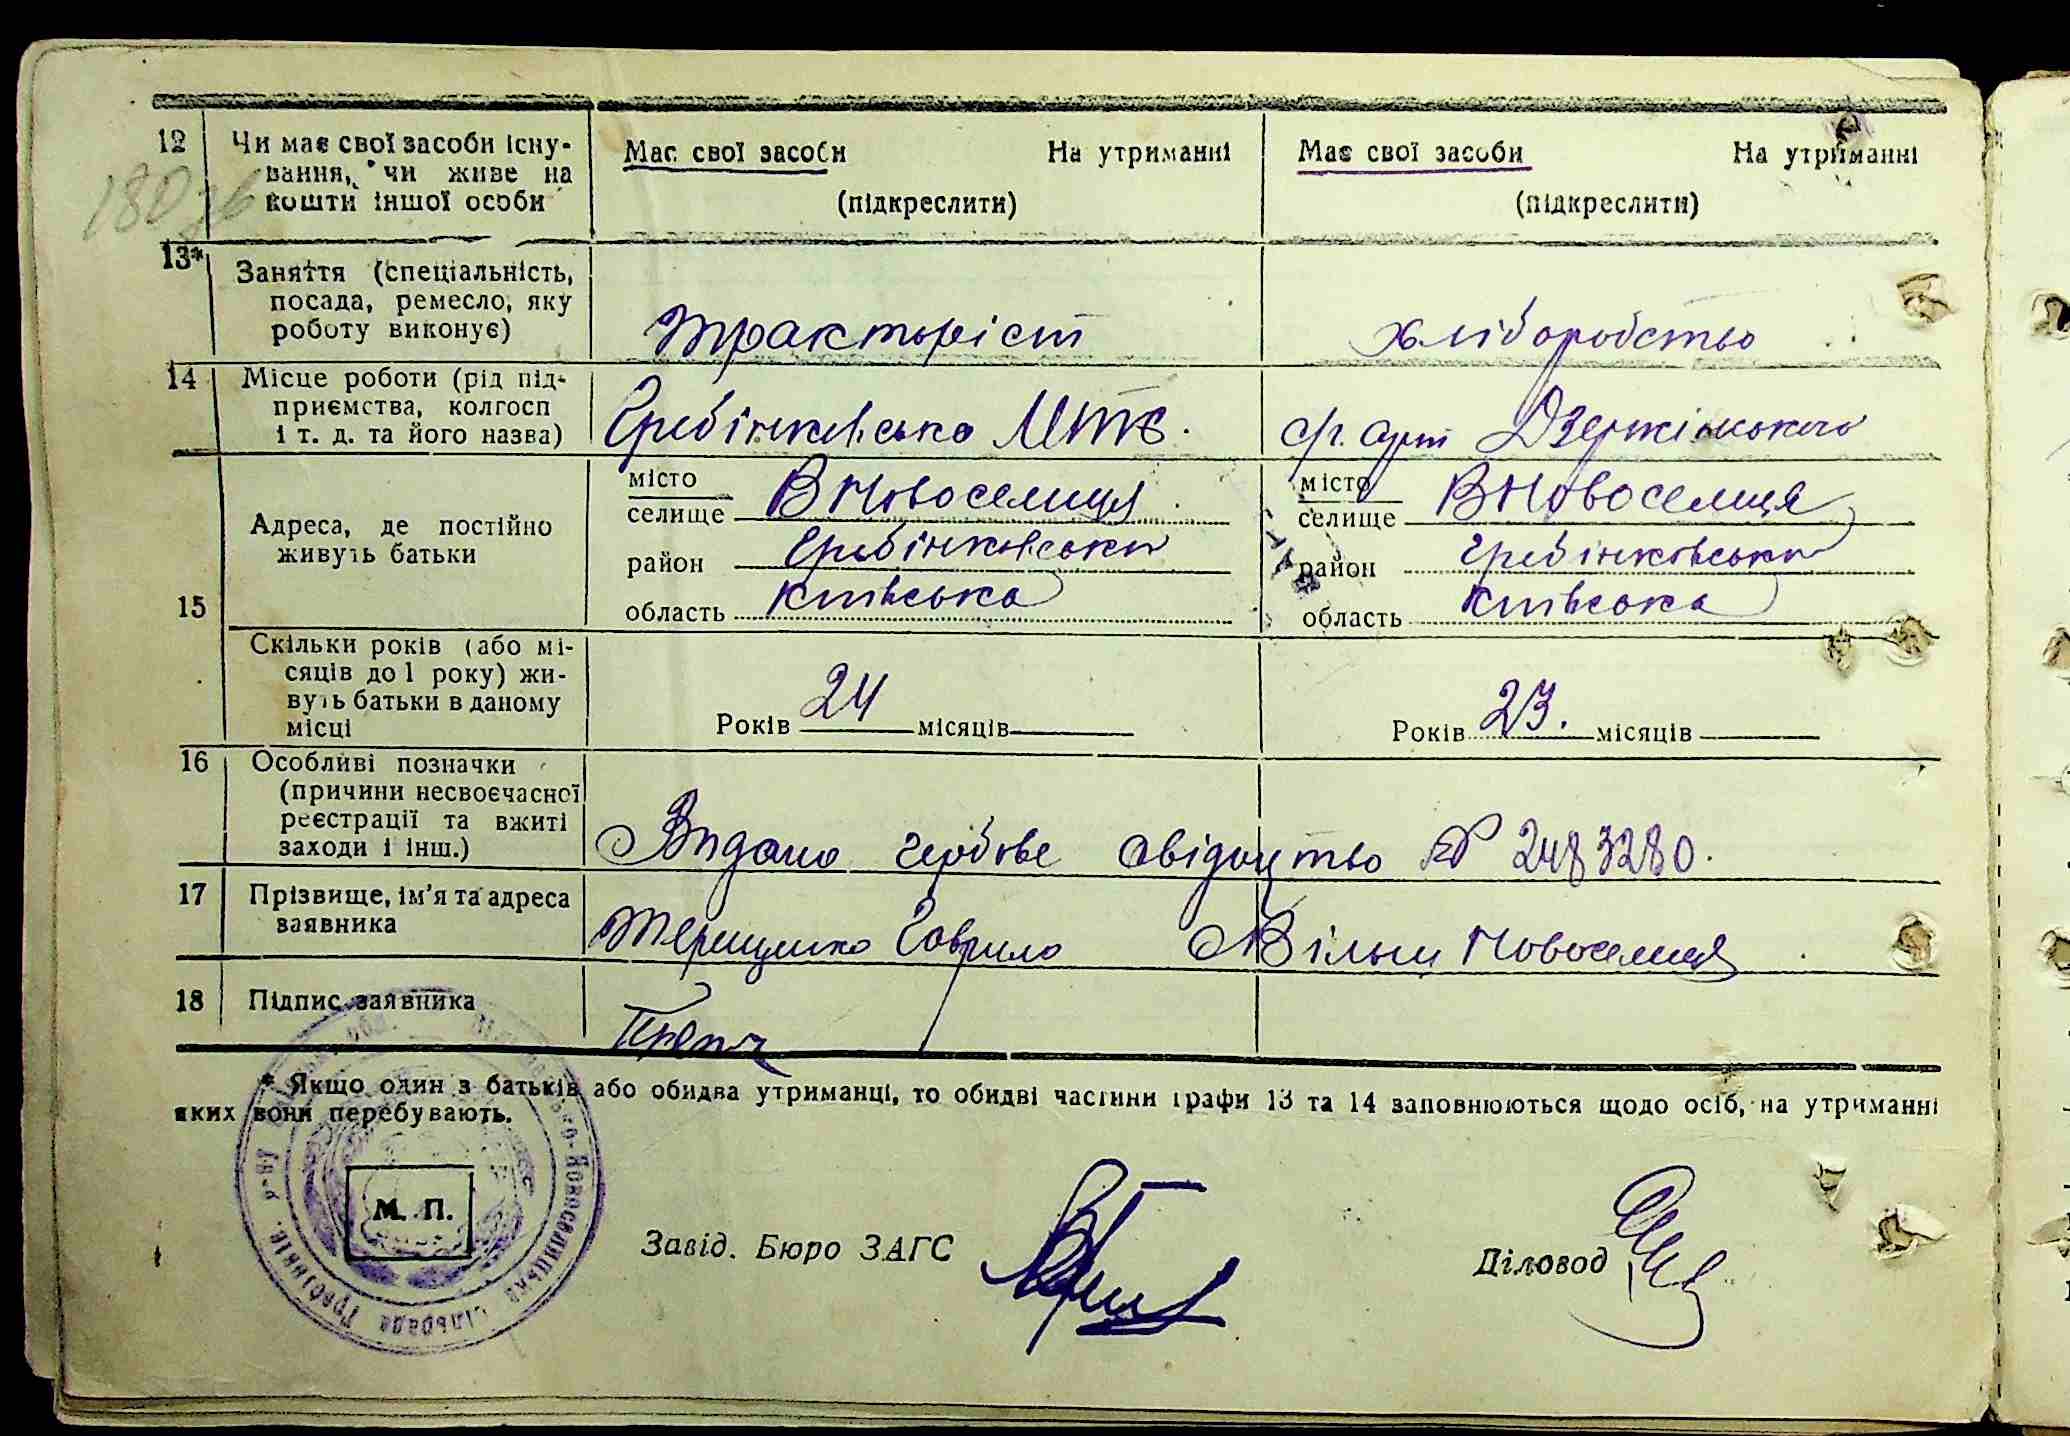 12 Чи має свої засоби існу- Має свої засоби На утриманні Має свої засоби На утриманні
вання, чи живе на
кошти іншої особи (підкреслити) (підкреслити)
180
13* Заняття (спеціальність,
посада, ремесло, яку
роботу виконує) Тракторіст хліборобство
14 Місце роботи (рід під-
приємства, колгосп
і т. д. та його назва) Гребінківська МТС. с/г. арт Дзержінського
15 Адреса, де постійно
живуть батьки
місто
селище ВНовоселиця
район Гребінковський
область Київська
місто
селище ВНовоселиця
район Гребінковський
область Київська
Скільки років (або мі-
сяців до 1 року) жи-
вуть батьки в даному
місці
Років 24 місяців Років 23. місяців
16 Особливі позначки
(причини несвоєчасної
реєстрації та вжиті
заходи і інш.) Видано гербове свідоцтво № 2483280.
17 Прізвище, ім'я та адреса
заявника Терещенко Гаврило с Вільш Новоселиця
18 Підпис заявника
* Якщо один з батьків або обидва утриманці, то обидві частини графи 13 та 14 заповнюються щодо осіб, на утриманні
яких вони перебувають.
М. П.
Завід. Бюро ЗАГС Діловод